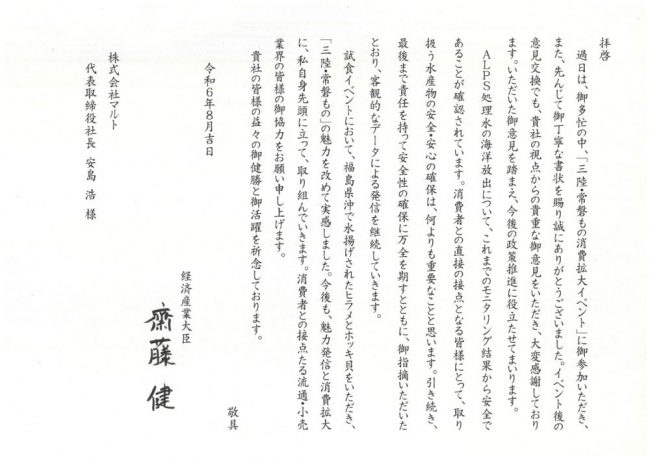 拝啓
過日は、御多忙の中、「三陸・常磐もの消費拡大イベント」に御参加いただき、
また、先んじて御丁寧な書状を賜り誠にありがとうございました。イベント後の
意見交換でも、貴社の視点からの貴重な御意見をいただき、大変感謝しており
ます。いただいた御意見を踏まえ、今後の政策推進に役立たせてまいります。
ALPS処理水の海洋放出について、これまでのモニタリング結果から安全で
あることが確認されています。消費者との直接の接点となる皆様にとって、取り
扱う水産物の安全・安心の確保は、何よりも重要なことと思います。引き続き、
最後まで責任を持って安全性の確保に万全を期すとともに、御指摘いただいた
とおり、客観的なデータによる発信を継続していきます。
試食イベントにおいて、福島県沖で水揚げされたヒラメとホッキ貝をいただき、
「三陸・常磐もの」の魅力を改めて実感しました。今後も、魅力発信と消費拡大
に、私自身先頭に立って、取り組んでいきます。消費者との接点たる流通・小売
業界の皆様の御協力をお願い申し上げます。
貴社の皆様の益々の御健勝と御活躍を祈念しております。
敬具
経済産業大臣
齋藤 健
令和6年8月吉日
株式会社マルト
代表取締役社長 安島 浩 様